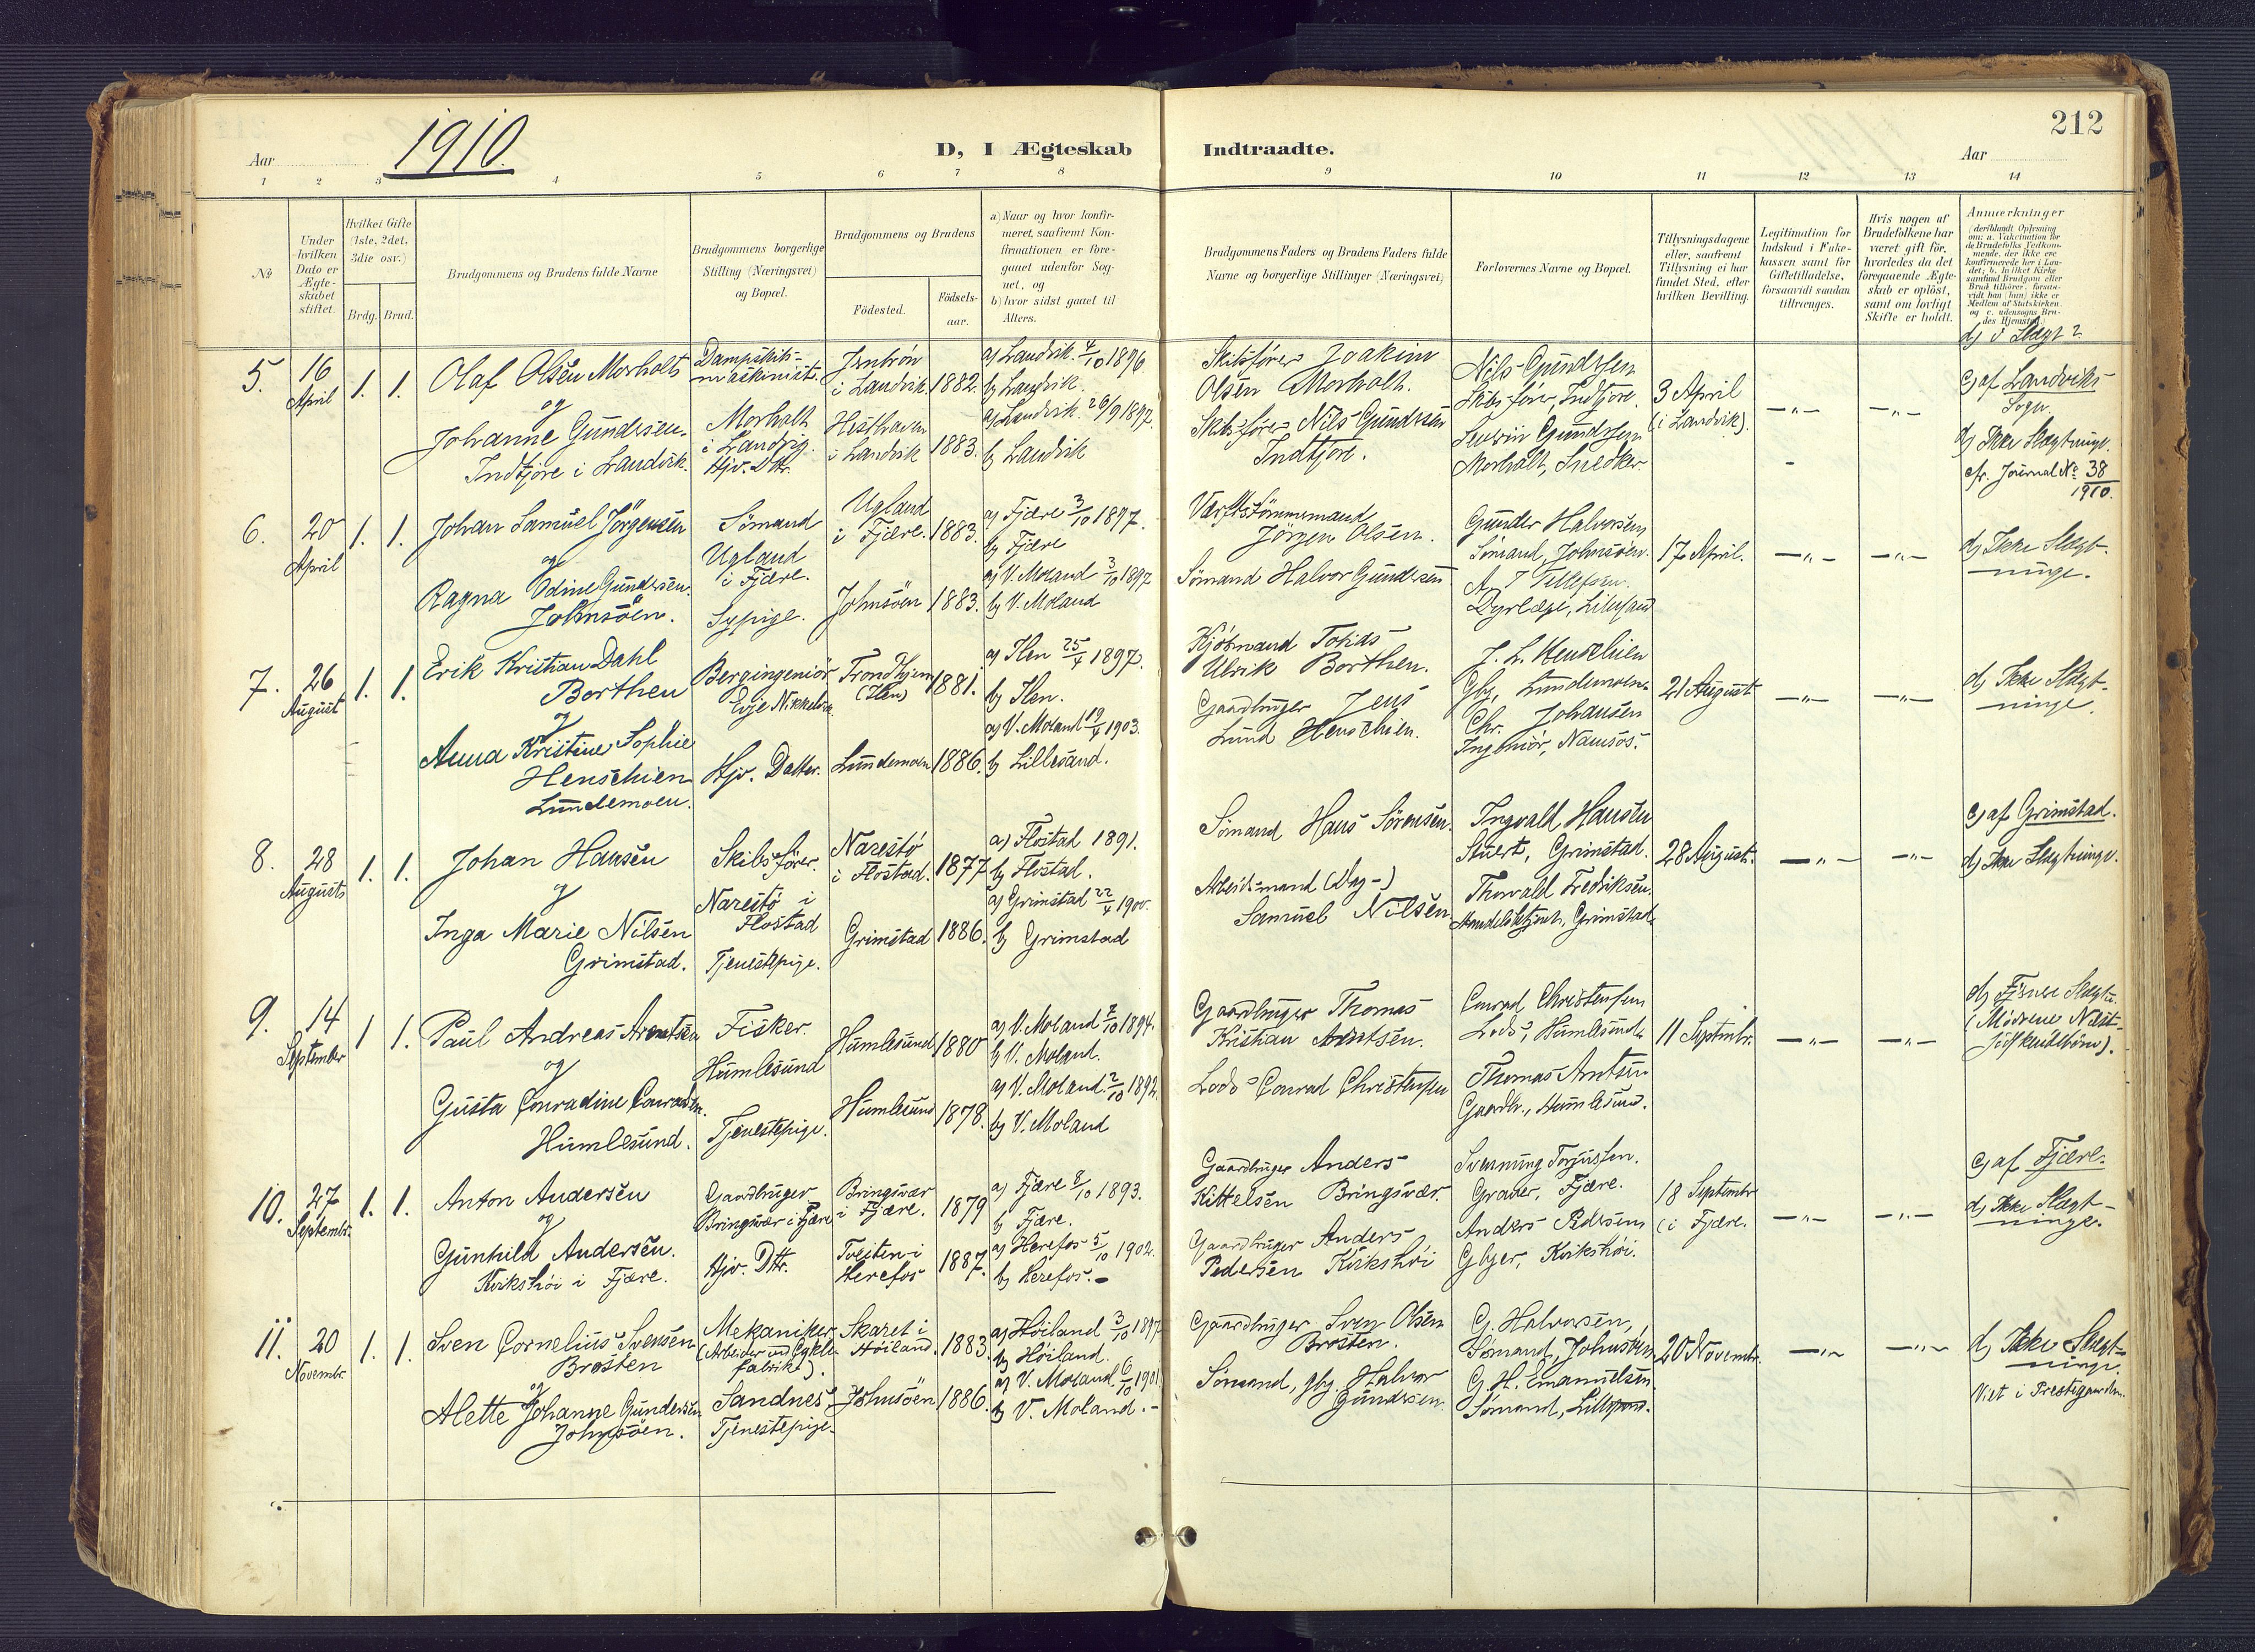 1910.
212
Aar
D, I Ægteskab
Indtraadte.
Aar
1 2 3 4 5 6 7 8 9 10 11 12 13 14
No
Under
hvilken
Dato er
Ægte-
skabet
stiftet.
Hvilket Gifte
(1ste, 2det,
3die osv.)
Brdg. Brud.
Brudgommens og Brudens fulde Navne
Brudgommens borgerlige
Stilling (Næringsvei)
og Bopæl.
Brudgommens og Brudens
Födested.
Födsels-
aar.
a) Naar og hvor konfir-
meret, saafremt Kon-
firmationen er fore-
gaaet udenfor Sog-
net, og
b) hvor sidst gaaet til
Alters.
Brudgommens Faders og Brudens Faders fulde
Navne og borgerlige Stillinger (Næringsvei)
Forlovernes Navne og Bopæl.
Tillysningsdagene
eller, saafremt
Tillysning ei har
fundet Sted, efter
hvilken Bevilling.
Legitimation for
Indskud i Enke-
kassen samt for
Giftetilladelse,
forsaavidt saadan
tiltrænges.
Hvis nogen af
Brudefolkene har
været gift før,
hvorledes da det
foregaaende Ægte-
skab er oplöst,
samt om lovligt
Skifte er holdt.
Anmærkninger
(deriblandt Oplysning
om: a. Vakcination for
de Brudefolks Vedkom-
mende, der ikke ere
konfirmerede her i Lan-
det; b. hvilket Kirke-
samfund Brudgom eller
Brud tilhörer, forsaa-
vidt han (hun) ikke er
Medlem af Statskirken,
og c. udensogns Bru-
des Hjemsted).
d) i Slægt?
5.
16
April
1. 1.
Olaf Olsen Morholt
og
Johanne Gundersen
Indtjöre i Landvik.
Dampskibs-
maskinist.
Morholt
i Landvig.
Hjv. Dttr.
i Landvik.
Hesthaven
i Landvik
1882.
1883.
a) Landvik 4/10 1896
b) Landvik.
a) Landvik 26/9 1897.
b) Landvik
Skibsförer Joakim
Olsen Morholt.
Skibsförer Nils Gundersen
Indtjöre.
Nils Gundersen
Skibsförer, Indtjöre.
Severin Gundersen
Morholt, Snedker
3 April
(i Landvik).
— " —
— " —
c) af Landviks
Sogn.
d) Ikke Slægtninge.
cfr. Journal No 38
1910.
6.
20
April
1. 1.
Johan Samuel Jörgensen
og
Ragna Odine Gundersen
Johnsöen.
Sömand
Ugland
i Fjære.
Sypige.
Ugland
i Fjære.
Johnsöen
1883.
1883.
a) Fjære 3/10 1897.
b) Fjære
a) V. Moland 3/10 1897
b) V. Moland
Værftstömmermand
Jörgen Olsen.
Sömand Halvor Gundersen
Gunder Halvorsen
Sömand, Johnsöen.
A. T. Tellefsen.
Dyrlæge, Lillesand
17 April.
— " —
— " —
d) Ikke Slægt-
ninge.
7.
26
August
1. 1.
Erik Kristian Dahl
Borthen
og
Anna Kristine Sophie
Henschien
Lundemoen.
Bergingeniör
Evje Nikkelverk
Hjv. Datter.
Trondhjem
(Ilen)
Lundemoen
1881.
1886.
a) Ilen 25/4 1897.
b) Ilen.
a) V. Moland 19/4 1903.
b) Lillesand.
Kjöbmand Tobias
Ulrik Borthen.
Gaardbruger Jens
Lund Henschien.
J. L. Henschien
Gbg, Lundemoen.
Chr. Johansen
Ingeniör, Namsos.
21 August
— " —
— " —
d) Ikke Slægt-
ninge.
8.
28
August
1. 1.
Johan Hansen
og
Inga Marie Nilsen
Grimstad.
Skibsförer.
Narestö i
Flostad
Tjenestepige.
Narestö
i Flostad.
Grimstad
1877
1886.
a) Flostad 1891.
b) Flostad.
a) Grimstad 22/4 1900.
b) Grimstad
Sömand Hans Sörensen.
Arbeidsmand (Dag-)
Samuel Nilsen
Ingvald Hansen
Stuert, Grimstad.
Thorvald Fredriksen.
Handelsbetjent, Grimstad
28 August.
— " —
— " —
c) af Grimstad.
d) Ikke Slægtninge.
9.
14
September
1 1.
Paul Andreas Arentsen
og
Gusta Conradine Conradsen.
Humlesund.
Fisker.
Humlesund
Tjenestepige.
Humlesund
Humlesund
1880
1878.
a) V. Moland 7/10 1894.
b) V. Moland.
a) V. Moland 2/10 1892.
b) V. Moland
Gaardbruger Thomas
Kristian Arntsen.
Lods Conrad Christensen
Conrad Christensen
Lods, Humlesund.
Thomas Arntsen
Gaardb., Humlesund.
11 Septmbr.
— " —
— " —
(Mödrene Næst-
södskendebörn).
10.
27
Septembr.
1. 1.
Anton Andersen
og
Gunhild Andersen.
Kirkshöi i Fjære.
Gaardbruger
Bringsvær i Fjære
Hjv. Dttr.
Bringsvær
i Fjære.
Tveiten i
Herefos
1879
1887.
a) Fjære 8/10 1893.
b) Fjære.
a) Herefos 5/10 1902.
b) Herefos.
Gaardbruger Anders
Kittelsen Bringsvær.
Gaardbruger Anders
Pedersen Kirkshöi
Svenning Torjussen.
Graver, Fjære.
Anders Pedersen
Gbger, Kirkshöi.
18 Septembr
(i Fjære.
— " —
— " —
c) af Fjære.
d) Ikke Slægt-
ninge.
11.
20
Novembr.
1. 1.
Sven Cornelius Svensen
Brosten
og
Alette Johanne Gundersen
Johnsöen.
Mekaniker
(Arbeider ved Cykle-
fabrik).
Sandnes
Tjenestepige.
Skaret i
Höiland.
Johnsöen
1883.
1886.
a) Höiland 3/10 1897
b) Höiland.
a) V. Moland 6/10 1901
b) V. Moland.
Gaardbruger Sven Olsen
Brosten.
Sömand, gbg. Halvor
Gundersen.
G. Halvorsen,
Sömand, Johnsöen
G. H. Emanuelsen
Sömand, Lillesand.
20 Novembr.
— " —
— " —
d) Ikke Slægt-
ninge.
Viet i Prestegaarden.